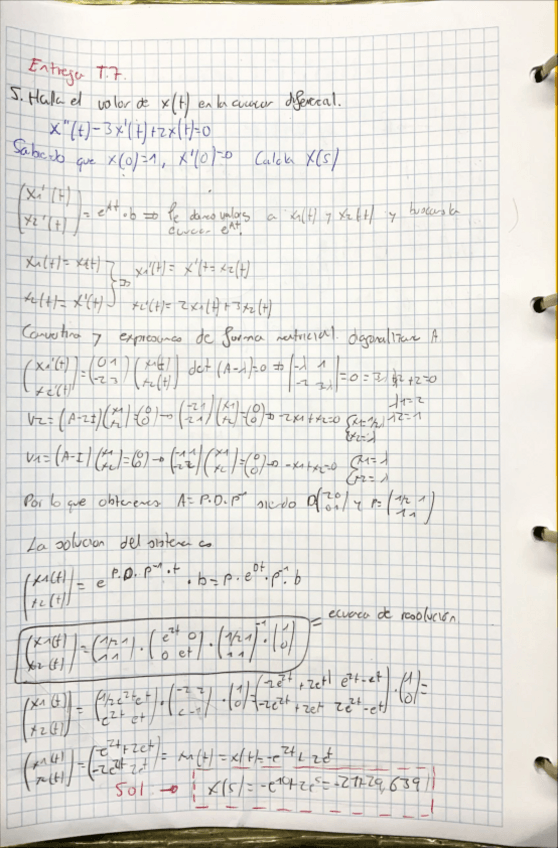 Entrega T.7.
5. Halla el valor de x(t) en la ecuacion diferencial.
x''(t)-3x'(t)+2x(t)=0
Sabiendo que x(0)=1, x'(0)=0 Calcula x(5)
(x1'(t) x2'(t)) = e^At · b => le damos valores a x1(t) y x2(t) y
e^At.
x1(t)=x(t) } => x1'(t)=x'(t)=x2(t)
x2(t)=x'(t) } x2'(t)=-2x1(t)+3x2(t)
y expresamos de forma matricial. diagonalizar A
(x1'(t) x2'(t)) = (0 1 -2 3) (x1(t) x2(t)) det (A-λ)=0 => |-λ 1 -2 3-λ|=0
λ1=2
V2=(A-2I)(x1 x2)=(0 0)→(-2 1 -2 1)(x1 x2)=(0 0)→-2x1+x2=0 {x1=1/2 x2=λ λ2=1
V1=(A-I)(x1 x2)=(0 0)→(-1 1 -2 2)(x1 x2)=(0 0)→-x1+x2=0 {x1=λ x2=λ
Por lo que obtenemos A=P·D·P^-1 siendo D(2 0 0 1) y P=(1/2 1 1 1)
La solucion del sistema es
(x1(t) x2(t)) = e^P·D·P^-1·t · b = P·e^Dt·P^-1·b
(x1(t) x2(t)) = (1/2 1 1 1)·(e^2t 0 0 e^t)·(1/2 1 1 1)^-1·(1 0) = ecuacion de resolución
(x1(t) x2(t)) = (1/2e^2t e^t e^2t e^t)·(-2 2 2 -1)·(1 0)=(-e^2t+2e^t e^2t-e^t -2e^2t+2e^t 2e^2t-e^t)·(1 0)=
(x1(t) x2(t)) = (-e^2t+2e^t -2e^2t+2e^t) = x1(t)=x(t)=-e^2t+2e^t
Sol → x(5)=-e^10+2e^5=-21729,639